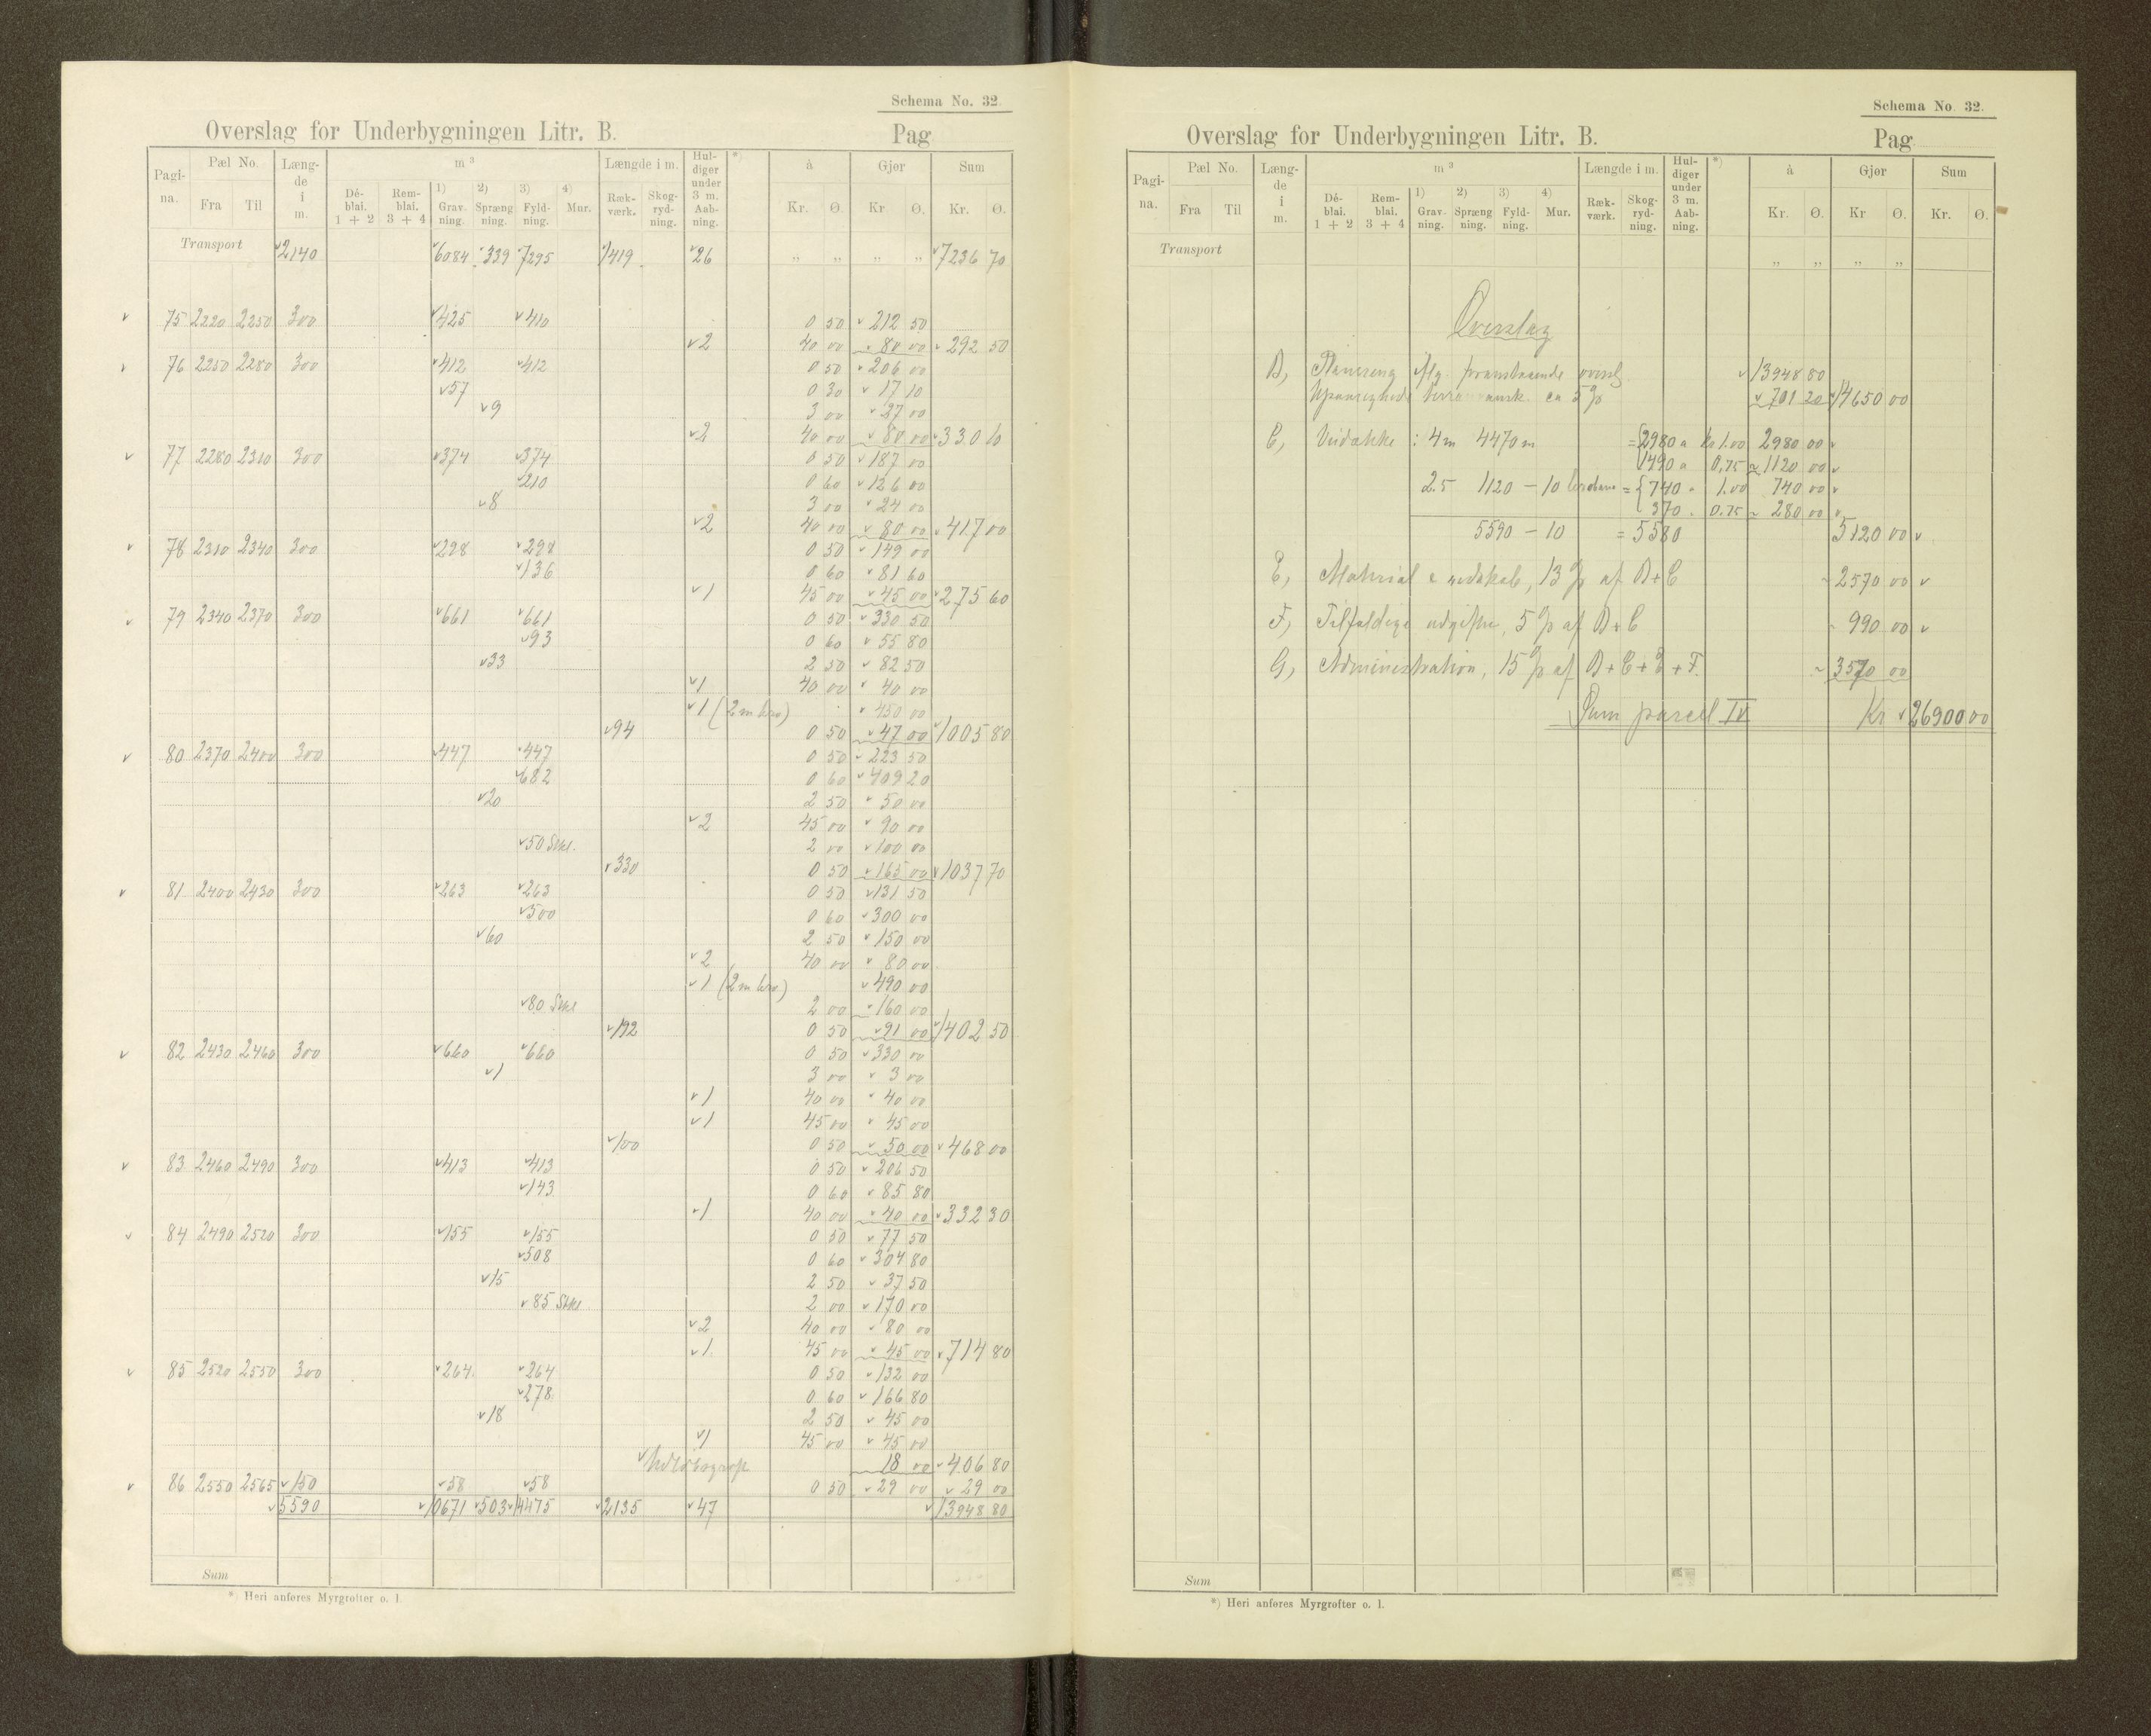 Schema No. 32.
Overslag for Underbygningen Litr. B.
Pag
Pagi-na. Pæl No. Fra Til Længde i m. m³ Dé-blai. 1 + 2 Rem-blai. 3 + 4 1) Grav-ning. 2) Spræng ning. 3) Fyld-ning. 4) Mur. Længde i m. Ræk-værk. Skog-ryd-ning. Hul-diger under 3 m. Aab-ning. *) à Kr. Ø. Gjør Kr Ø. Sum Kr. Ø.
Transport 2140 6084 339 7295 1419 26 „ „ „ „ 7236 70
75 2220 2250 300 425 410 0 50 212 50
2 40 00 80 00 292 50
76 2250 2280 300 412 412 0 50 206 00
57 0 30 17 10
9 3 00 27 00
2 40 00 80 00 330 10
77 2280 2310 300 374 374 0 50 187 00
210 0 60 126 00
8 3 00 24 00
2 40 00 80 00 417 00
78 2310 2340 300 298 298 0 50 149 00
136 0 60 81 60
1 45 00 45 00 275 60
79 2340 2370 300 661 661 0 50 330 50
93 0 60 55 80
33 2 50 82 50
1 40 00 40 00
1 (2 m bro) 450 00
94 0 50 47 00 1005 80
80 2370 2400 300 447 447 0 50 223 50
682 0 60 409 20
20 2 50 50 00
2 45 00 90 00
50 2 00 100 00
330 0 50 165 00 1037 70
81 2400 2430 300 263 263 0 50 131 50
500 0 60 300 00
60 2 50 150 00
2 40 00 80 00
1 (2 m bro) 490 00
80 2 00 160 00
192 0 50 91 00 1402 50
82 2430 2460 300 660 660 0 50 330 00
1 3 00 3 00
1 40 00 40 00
1 45 00 45 00
100 0 50 50 00 468 00
83 2460 2490 300 413 413 0 50 206 50
143 0 60 85 80
1 40 00 40 00 332 30
84 2490 2520 300 155 155 0 50 77 50
508 0 60 304 80
15 2 50 37 50
85 2 00 170 00
2 40 00 80 00
1 45 00 45 00 714 80
85 2520 2550 300 264 264 0 50 132 00
278 0 60 166 80
18 2 50 45 00
1 45 00 45 00
18 00 406 80
86 2550 2565 150 58 58 0 50 29 00 29 00
5590 10671 503 14475 2135 47 13948 80
Sum
*) Heri anføres Myrgrøfter o. l.
Schema No. 32.
Overslag for Underbygningen Litr. B.
Pag
Pagi-na. Pæl No. Fra Til Længde i m. m³ Dé-blai. 1 + 2 Rem-blai. 3 + 4 1) Grav-ning. 2) Spræng ning. 3) Fyld-ning. 4) Mur. Længde i m. Ræk-værk. Skog-ryd-ning. Hul-diger under 3 m. Aab-ning. *) à Kr. Ø. Gjør Kr Ø. Sum Kr. Ø.
Transport „ „ „ „
Overslag
B, Planering iflg. foranstaaende oversl. 13948 80
ca 5 % 701 20 14650 00
C, Veidække : 4 m 4470 m = 2980 a Kr 1.00 2980 00
1490 a 0,75 1120 00
2.5 1120 - 10 = 740 1.00 740 00
370 0.75 280 00
5590 - 10 = 5580 5120 00
E, Material & redskab, 13 % af B + C 2570 00
F, Tilfældige udgifter, 5 % af B + C 990 00
G, Administration, 15 % af B + C + E + F. 3570 00
Sum parcel IV Kr 26900 00
Sum
*) Heri anføres Myrgrøfter o. l.